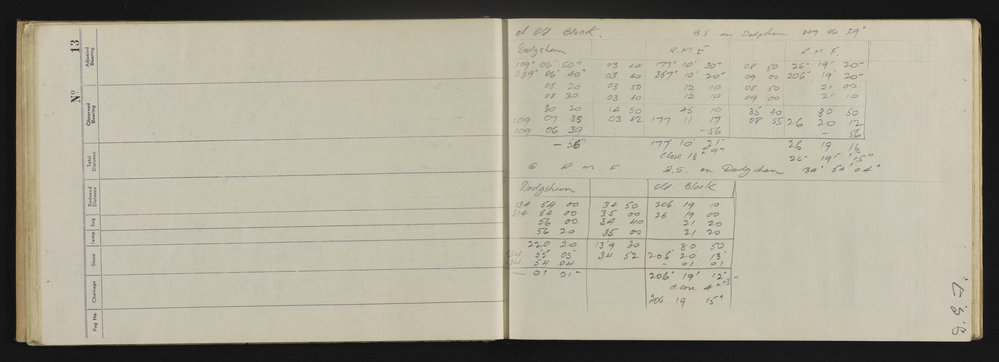 Nº 13
Peg No. Chainage Slope Temp. Sag Reduced Distance Total Distance Observed Bearing Adjusted Bearing
at Old Block. B.S on Dodgshun 109 06 39"
Dodgshun R.M.E R.M.F.
109° 06' 50" 03 40 177° 10' 30" 08 50 26° 19' 20"
289° 06' 40" 03 40 357° 10' 20" 09 00 206° 19' 20"
08 20 03 50 12 10 08 50 21 00
08 20 03 40 12 10 09 00 21 10
30 20 14 50 45 10 35 40 80 50
109 07 35 03 42 177 11 17 08 55 26 20 12
109 06 39 - 56 - 56
- 56" 177° 10' 21" 26 19 16
Close 18" - 9" 26° 19' 15"
@ R.M.F B.S. on Dodgshun 134° 54' 04"
Dodgshun Old Block
134 54 00 34 50 206 19 10
314 54 00 35 00 26 19 00
56 00 34 40 21 20
56 20 35 00 21 20
220 20 139 30 80 50
134 55 05 34 52 206 20 13
134 54 04 - 01 01
- 01 01" 206° 19' 12"
Close 4"
206 19 15"